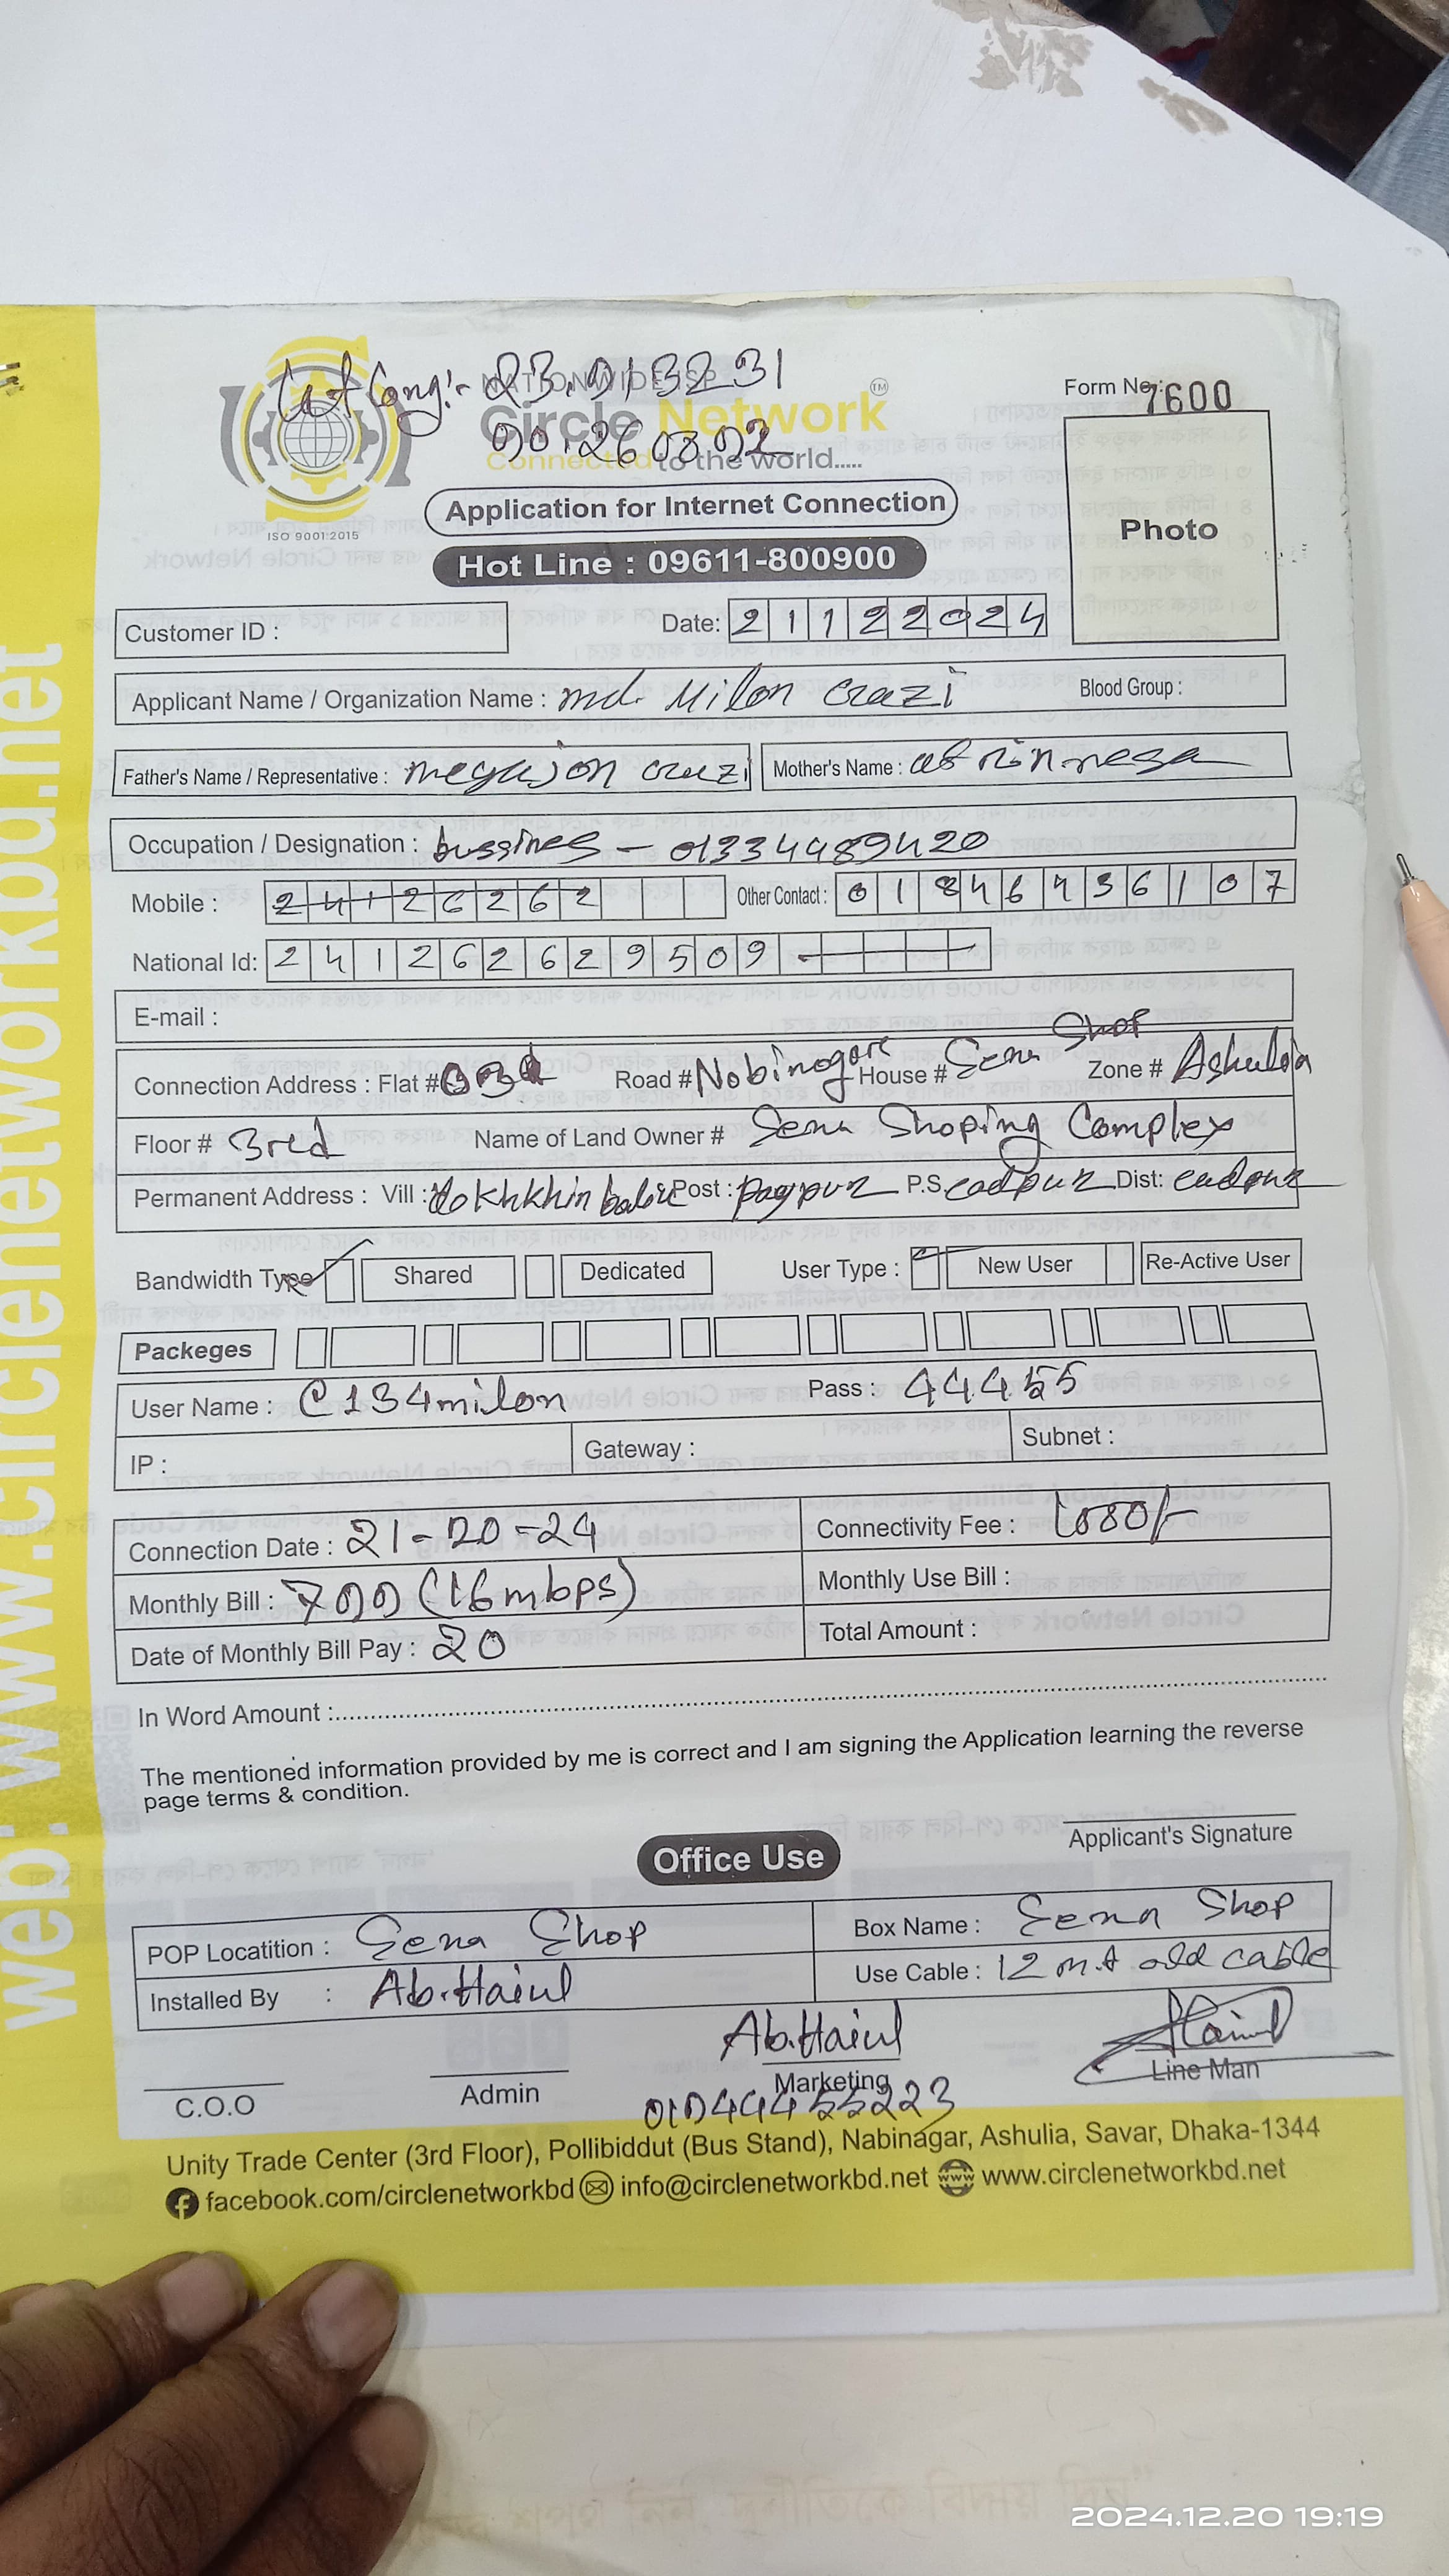 Lat Long:- 23.913231
90.260802
NATIONWIDE ISP
Circle Network TM
Connected to the world.....
ISO 9001:2015
Form No: 7600
Photo
Application for Internet Connection
Hot Line : 09611-800900
Customer ID :
Date: 21122024
Applicant Name / Organization Name : md. Milon Crazi
Blood Group :
Father's Name / Representative : megajon crazi Mother's Name :
Occupation / Designation : bussines - 01334489420
Mobile : 24126262 Other Contact : 01846436107
National Id: 241262629509
E-mail :
Connection Address : Flat # Road # Nobinogore House # Sena Shop Zone # Ashulia
Floor # 3red Name of Land Owner # Sena Shoping Complex
Permanent Address : Vill : dokhkhin Post : P.S cadpur Dist: cadpur
Bandwidth Type Shared Dedicated User Type : New User Re-Active User
Packeges
User Name : C134milon Pass : 444555
IP : Gateway : Subnet :
Connection Date : 21-20-24 Connectivity Fee :
Monthly Bill : 700 (16mbps) Monthly Use Bill :
Date of Monthly Bill Pay : 20 Total Amount :
In Word Amount :
The mentioned information provided by me is correct and I am signing the Application learning the reverse
page terms & condition.
Applicant's Signature
Office Use
POP Locatition : Sena Shop Box Name : Sena Shop
Installed By : Ab.Haiul Use Cable : 12 m.t old cable
Ab.Haiul
C.O.O Admin Marketing Line Man
Unity Trade Center (3rd Floor), Pollibiddut (Bus Stand), Nabinagar, Ashulia, Savar, Dhaka-1344
facebook.com/circlenetworkbd info@circlenetworkbd.net www.circlenetworkbd.net
web: www.circlenetworkbd.net
2024.12.20 19:19